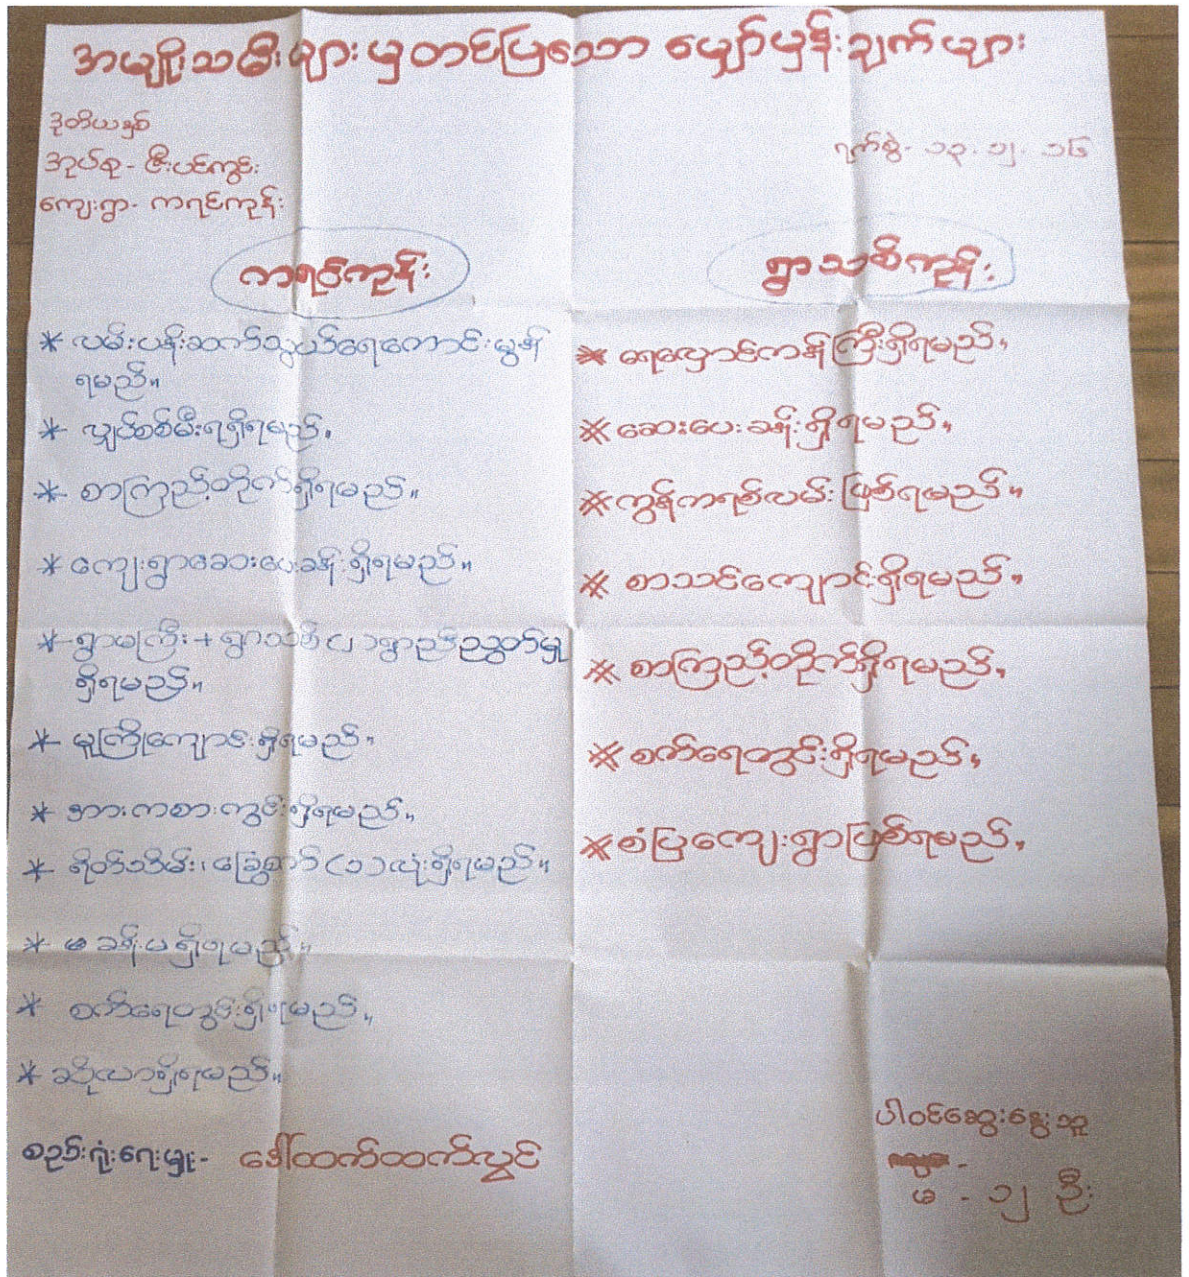 အမျိုးသမီးများမှတင်ပြသော မျှော်မှန်းချက်များ
ဒုတိယနှစ်
အုပ်စု - ဇီးပင်ကွင်း
ကျေးရွာ - ကရင်ကုန်း
ရက်စွဲ - ၁၃.၁၂.၁၆
ကရင်ကုန်း
* လမ်းပန်းဆက်သွယ်ရေကောင်းမွန်
ရမည်။
* လျှပ်စစ်မီးရရှိရမည်။
* စာကြည့်တိုက်ရှိရမည်။
* ကျေးရွာဆေးပေးခန်းရှိရမည်။
* ရွာမကြီး + ရွာသစ် (၂) ရွာညီညွတ်မှု
ရှိရမည်။
* မူကြိုကျောင်းရှိရမည်။
* အားကစားကွင်းရှိရမည်။
* ရိတ်သိမ်း၊ခြွေစက် (၁) လုံးရှိရမည်။
* ဓမ္မာရုံ
* စက်ရေတွင်းရှိရမည်။
* ဆိုလာရှိရမည်။
စည်းရုံးရေးမှူး - ဒေါ်ထက်ထက်လွင်
ရွာသစ်ကုန်း
* ရေလှောင်ကန်ကြီးရှိရမည်။
* ဆေးပေးခန်းရှိရမည်။
* ကွန်ကရစ်လမ်းဖြစ်ရမည်။
* စာသင်ကျောင်းရှိရမည်။
* စာကြည့်တိုက်ရှိရမည်။
* စက်ရေတွင်းရှိရမည်။
* စံပြကျေးရွာဖြစ်ရမည်။
ပါဝင်ဆွေးနွေးသူ
မ - ၁၂ ဦး